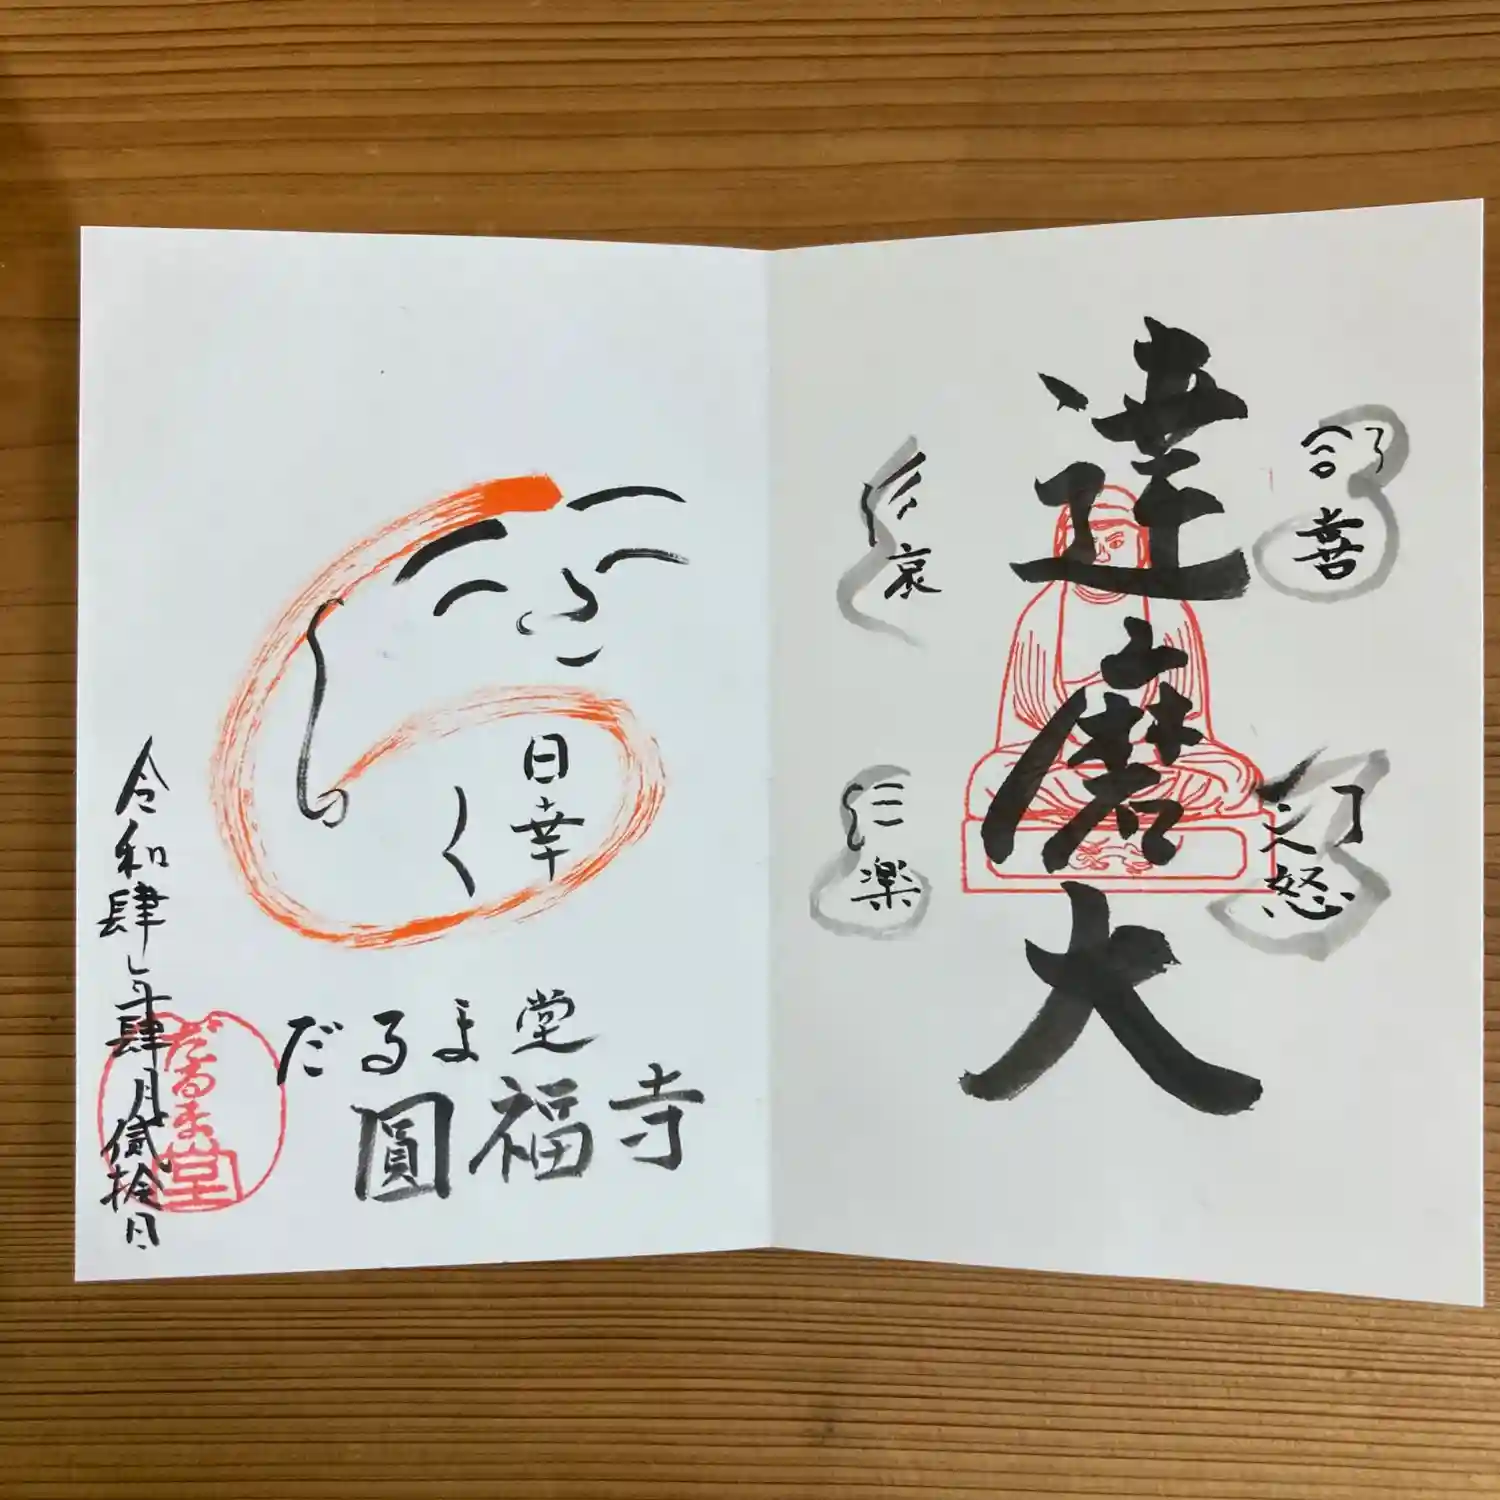 達磨大
喜
怒
哀
楽
日幸
だるま堂
圓福寺
令和肆年肆月貳拾日
だるま堂